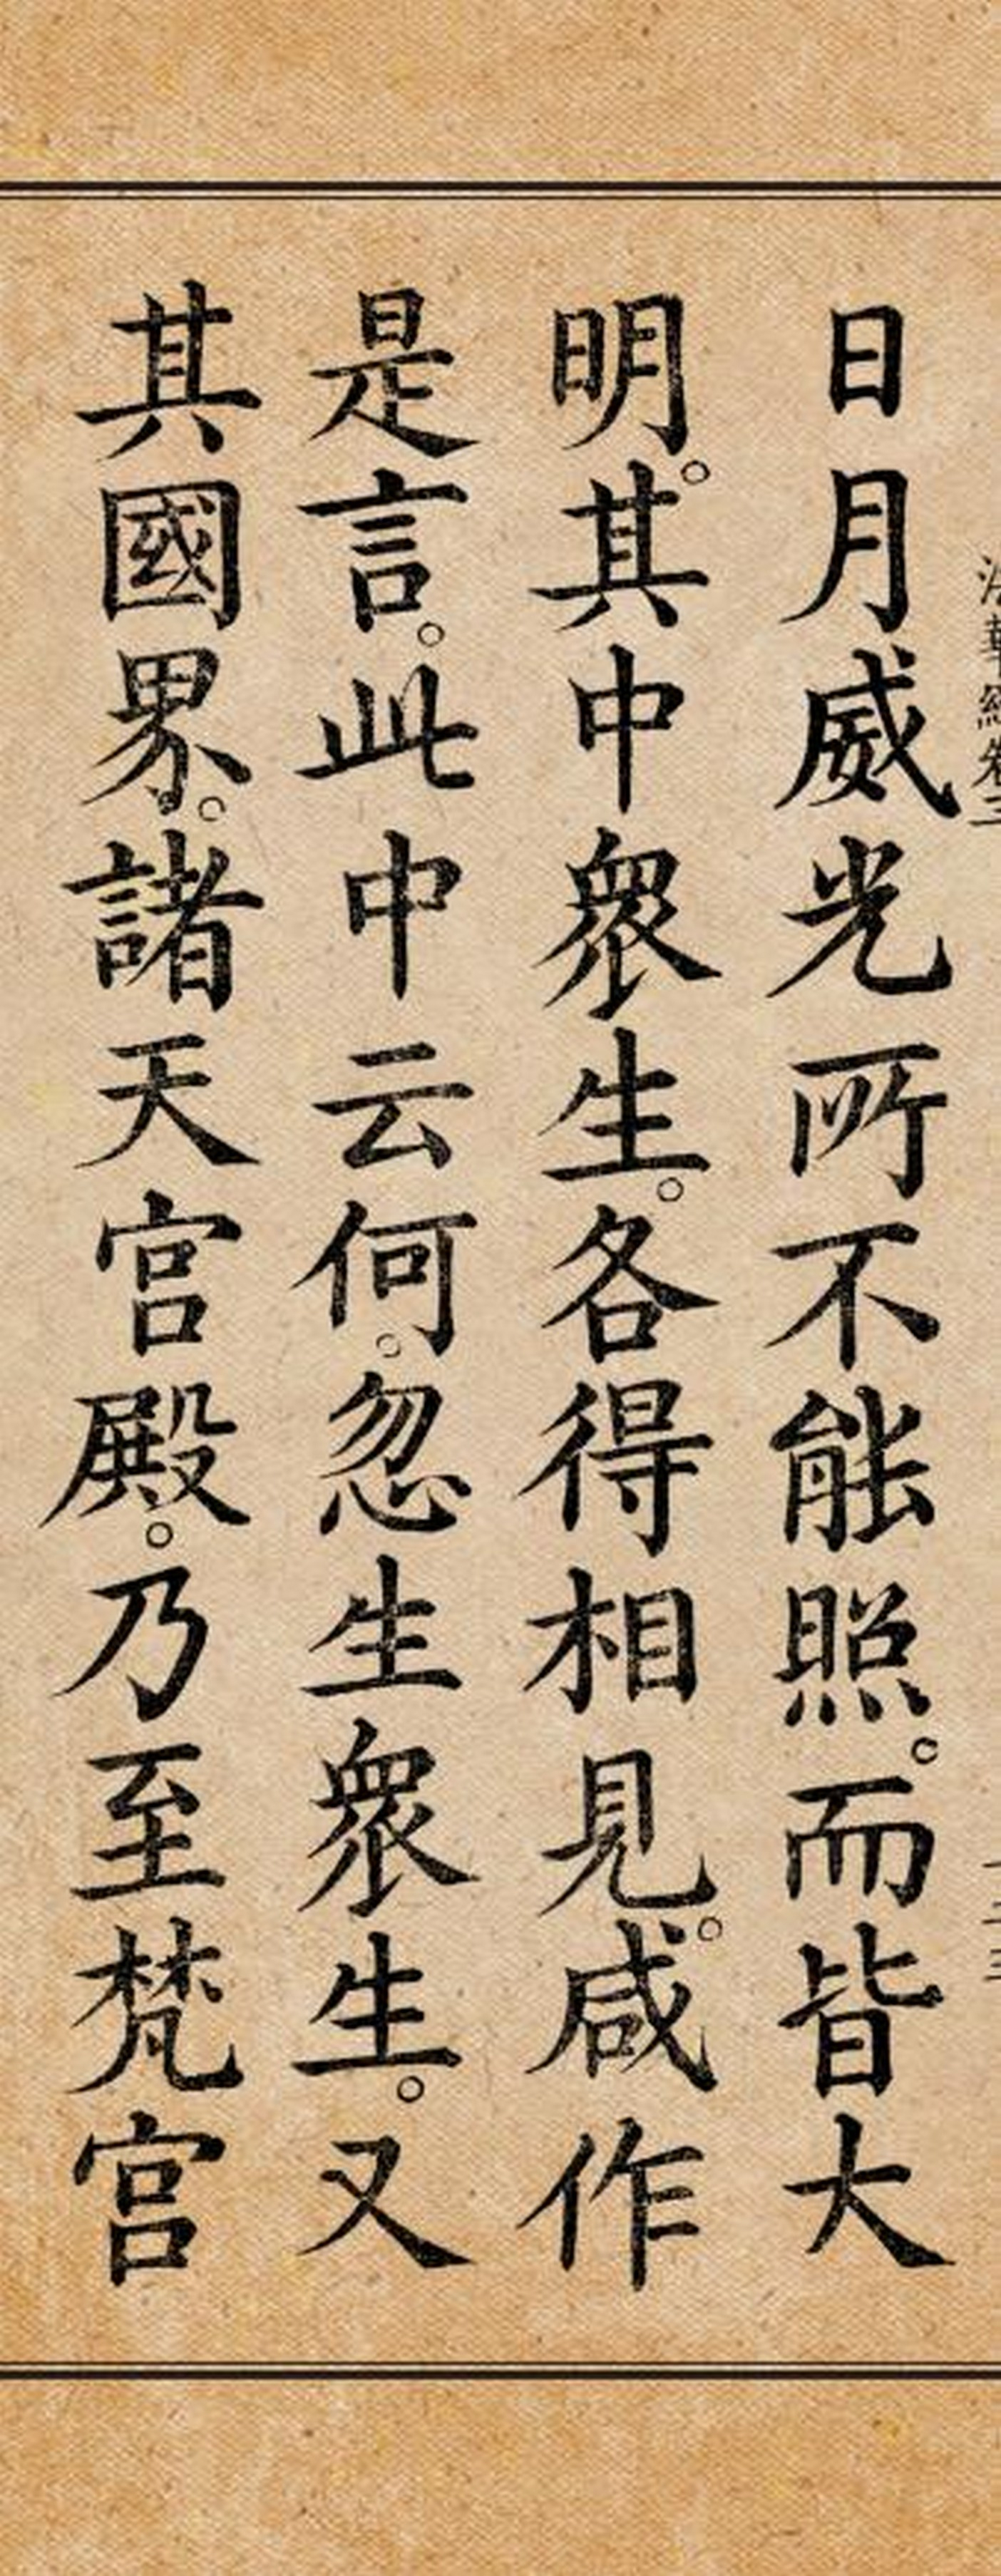 法華經卷三
二三
日月威光所不能照。而皆大
明。其中眾生。各得相見。咸作
是言。此中云何。忽生眾生。又
其國界。諸天宮殿。乃至梵宮